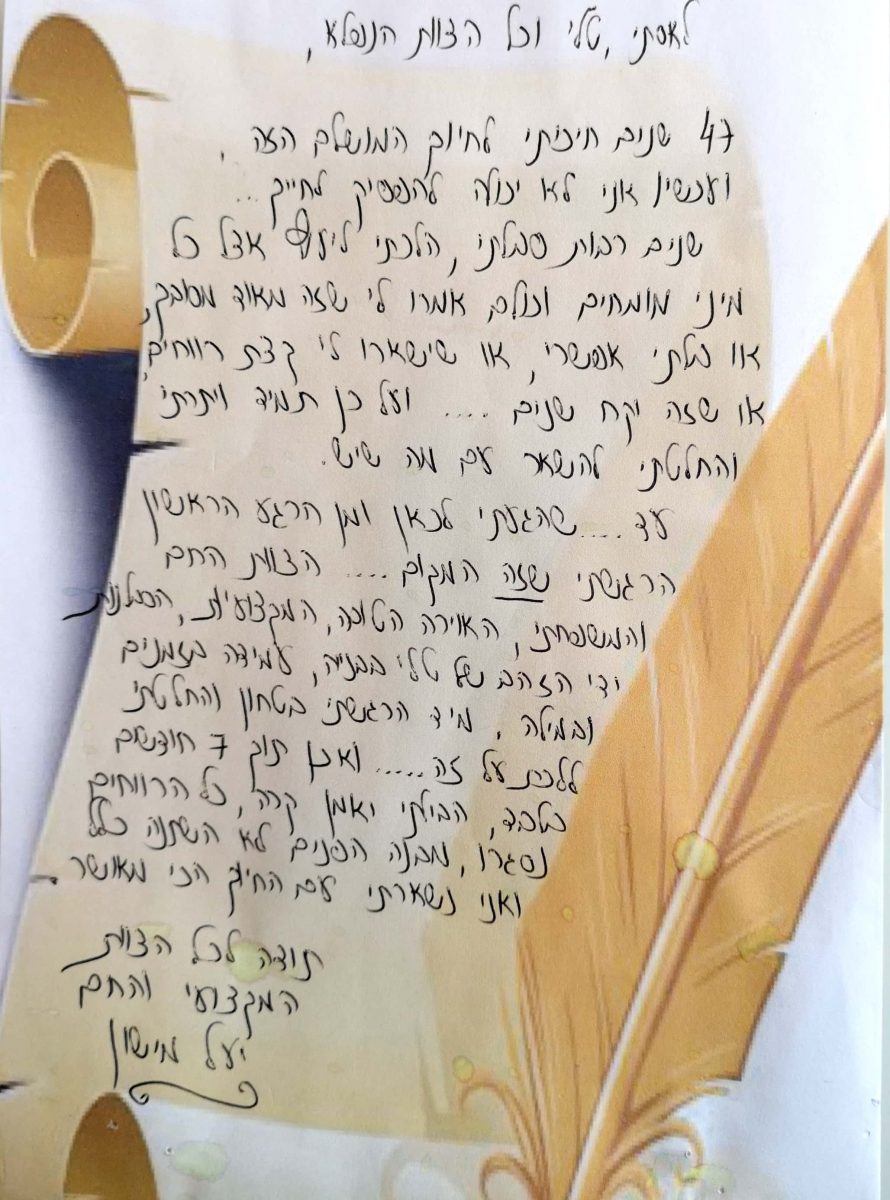 לאסתי, טלי וכל הצוות הנפלא,
47 שנים חיכיתי לחיוך המושלם הזה,
ועכשיו אני לא יכולה להפסיק לחייך...
שנים רבות סבלתי, הלכתי ליעוץ אצל כל
מיני מומחים וכולם אמרו לי שזה מאוד מסובך,
או בלתי אפשרי, או שישארו לי קצת רווחים,
או שזה יקח שנים.... ועל כן תמיד ויתרתי
והחלטתי להשאר עם מה שיש.
עד.... שהגעתי לכאן ומן הרגע הראשון
הרגשתי שזה המקום.... הצוות החם
והמשפחתי, האוירה הטובה, המקצועיות, הסבלנות
ידי הזהב של טלי בבנייה, עמידה בזמנים
ובמילה, מיד הרגשתי בטחון והחלטתי
ללכת על זה..... ואכן תוך 7 חודשים
בלבד, הבילתי יאמן קרה, כל הרווחים
נסגרו, מבנה הפנים לא השתנה כלל
ואני נשארתי עם החיוך הכי מאושר.
תודה לכל הצוות
המקצועי והחם
יעל מישון